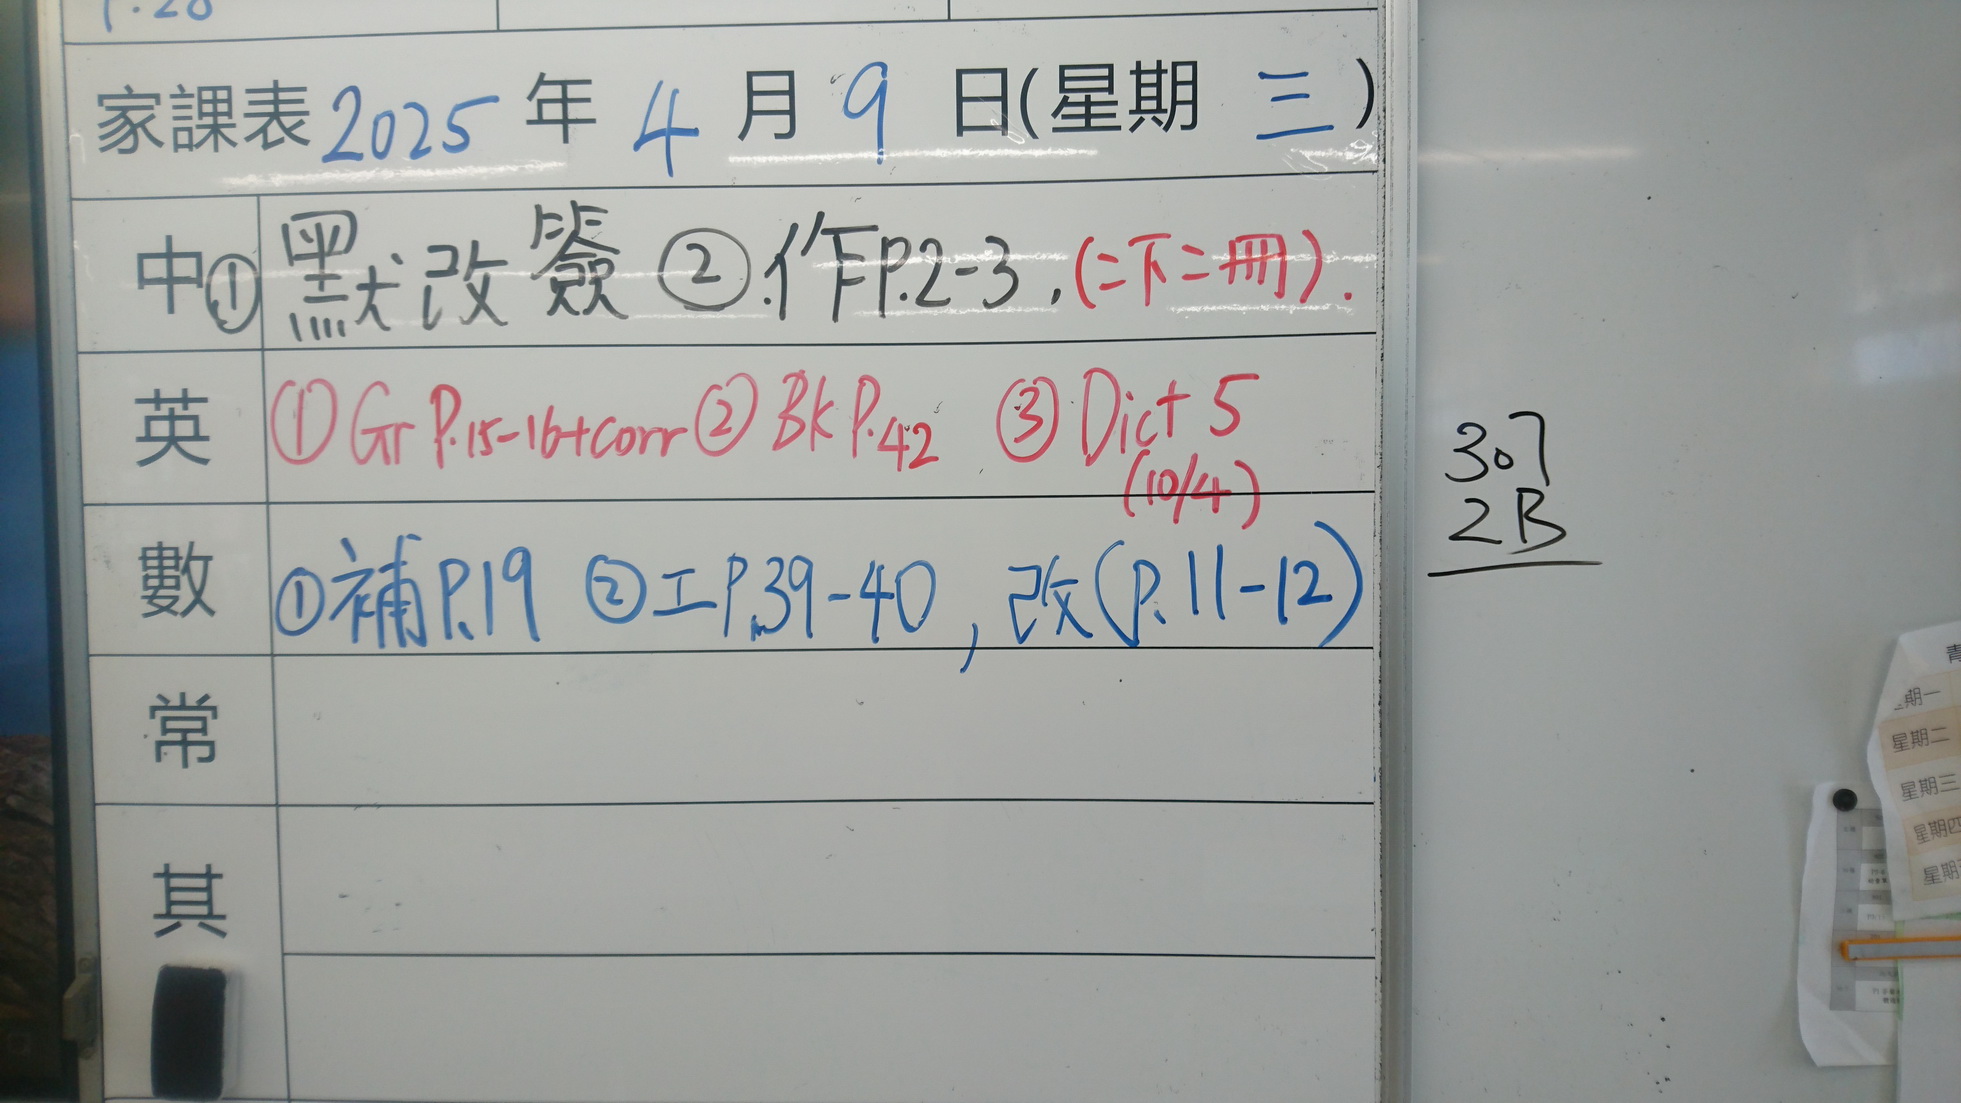 P.28
家課表 2025 年 4 月 9 日(星期 三)
中 ① 默改簽 ②.作P.2-3.(二下二冊).
英 ① Gr P.15-16+corr ② BK P.42 ③ Dict 5
(10/4)
數 ① 補P.19 ② 工P.39-40, 改(P.11-12)
常
其
307
2B
星期二
星期三